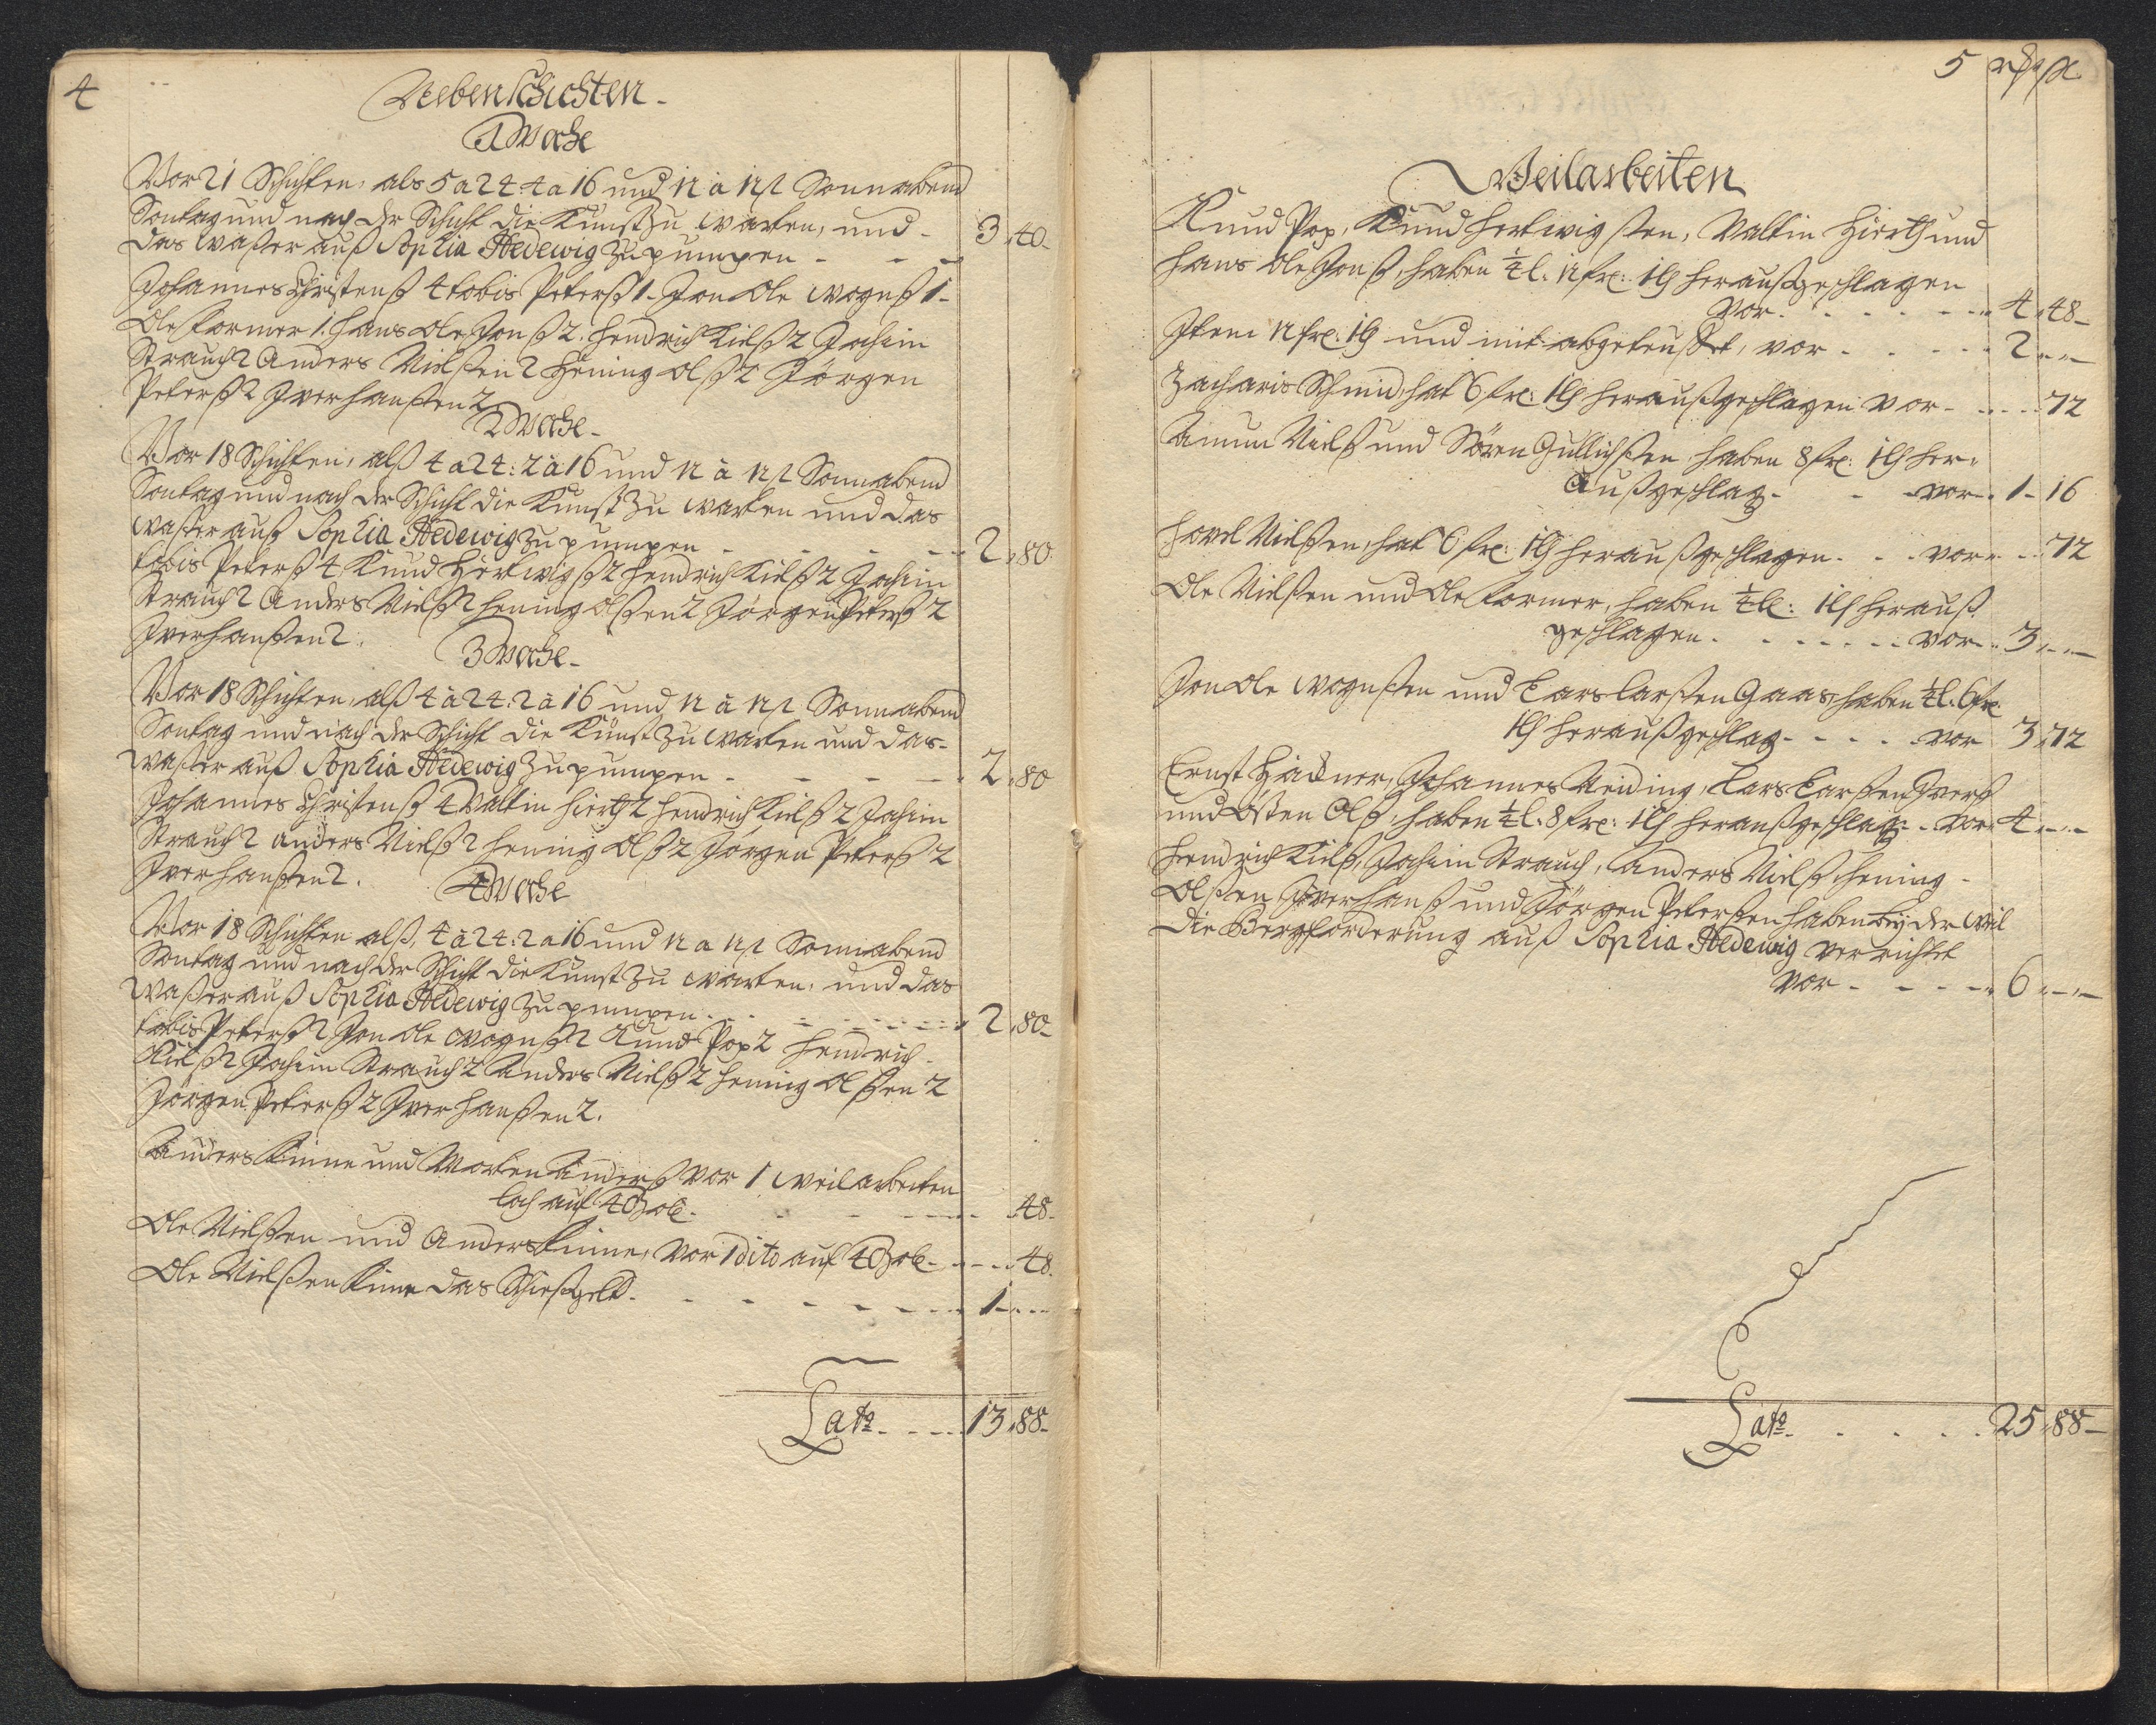 4
Nebenschichten.
1 Woche
Vor 21 Schichten, als 5 a 24: 4 a 16 und 12 à 12 ß Sonnabend
Sontag und nach der Schicht die Kunst zu warten, und -
das Waßer auß Sophia Hedewig zu pumpen - - - 3 „ 40 -
Johannes Christenß 4 tobis Peterß 1 - Jon Ole Wognß 1 -
Ole Cormer 1. Hans Ole Jonß 2. Hendrich Kielß 2 Jochim
Strauch 2 Anders Nielßen 2 Hening Olß 2 Jörgen
Peterß 2 Iver Hanßen 2
2 Woche -
Vor 18 Schichten, alß 4 a 24: 2 à 16 und 12 à 12 ß Sonnabend
Sontag und nach der Schicht die Kunst zu warten und das
Waßer auß Sophia Hedewig zu pumpen - - - - 2 „ 80
tobis Peterß 4 Knud Hertwigß 2 Hendrich Kielß 2 Jochim
Strauch 2 Anders Nielß 2 Hening Olßen 2 Jörgen Peterß 2
Iver Hanßen 2.
3 Woche -
Vor 18 Schichten, alß 4 à 24: 2 à 16 und 12 à 12 ß Sonnabend
Sontag und nach der Schicht die Kunst zu warten und das -
Waßer auß Sophia Hedewig zu pumpen - - - - 2 „ 80
Johannes Christenß 4 Valtin Hierth 2 Hendrich Kielß 2 Jochim
Strauch 2 anders Nielß 2 Hening Olß 2 Jörgen Peterß 2
Iver Hanßen 2.
4 Woche
Vor 18 Schichten alß, 4 à 24: 2 a 16 und 12 a 12 ß Sonnabend
Sontag und nach der Schicht die Kunst zu warten, und das
Waßer auß Sophia Hedewig zu pumpen - - - - 2 „ 80 -
tobis Peterß 2 Jon Ole Wognß 2 Knud Pop 2 Hendrich -
Kielß 2 Jochim Strauch 2 Anders Nielß 2 Hening Olßen 2
Jörgen Peterß 2 Iver Hanßen 2.
Anders Kinne und Morten Anderß vor 1 Weilarbeiten
Loch auf 40 Zolle - - - - - 48 -
Ole Nielßen und Anders Kinne, vor 1 dito auf 40 Zolle - - - 48.
Ole Nielßen Kinne das Schießgeld - - - - - 1 - - -
Lats. - - - 13 „ 88 -
5
Weilarbeiten
Knud Pop, Knud Hertwigßen, Valtin Hierth und
Hans Ole Jonß, haben ¼ l: 12 fr: 1 lß heraußgeschlagen
vor - - - - - 4 „ 48 -
Item 12 fr: 1 lß und mit abgeteufft, vor - - - - 2 „ -
Zacharis Schmid, hat 6 fr: 1 lß heraußgeschlagen vor - - - 72
Amun Nielß und Sören Gullichßen haben 8 fr: 1 lß her„
außgeschlag - - - vor - 1 - 16
Hovel Nielßen, hat 6 fr: 1 lß heraußgeschlagen - - vor - - 72
Ole Nielßen und Ole Cormer, haben ¼ l: 1 lß herauß
geschlagen - - - - - - vor - 3 - -
Jon Ole Wognßen und Lars Larßen Gaas, haben ¼ l. 6 fr:
1 lß heraußgeschlag - - - - vor 3 „ 72
Ernst Häckner, Johannes Neiding, Lars Larßen Iverß
und Östen Olß, haben ¼ l. 8 fr: 1 lß heraußgeschlag - - vor 4 - -
Hendrich Kielß, Jochim Strauch, Anders Nielß Hening -
Olßen Iver Hanß und Jörgen Peterßen haben bey der Weil
die Bergforderung auß Sophia Hedewig verrichtet
vor - - - - 6 - -
Lats. - - - - - 25 „ 88 -